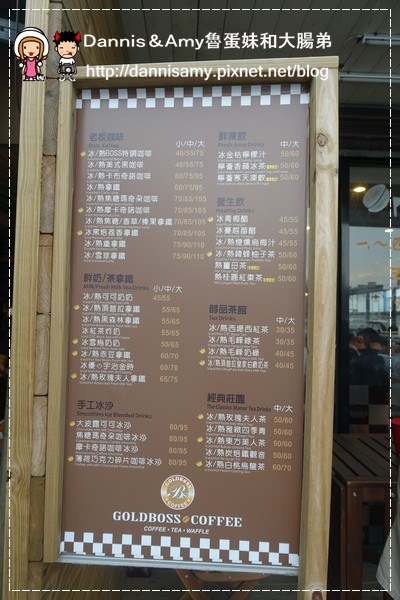 Dannis&Amy魯蛋妹和大腸弟
http://dannisamy.pixnet.net/blog
老板咖啡 小/中/大
Boss Coffee
冰/熱BOSS特調咖啡 40/55/75
冰/熱美式黑咖啡 40/55/75
冰/熱卡布奇諾咖啡 60/75/95
冰/熱拿鐵 60/75/95
冰/熱焦糖瑪奇朵咖啡 70/85/105
冰/熱摩卡奇諾咖啡 70/85/105
冰/熱焦糖/香草/榛果拿鐵 70/85/105
冰黑焙茗香拿鐵 70/85/105
冰/熱重拿鐵 75/90/110
冰/雪球拿鐵 75/90/110
鮮奶/茶拿鐵 小/中/大
Milk/Fresh Milk Tea Drinks
冰/熱可可奶奶 45/55
冰/熱頂普拉拿鐵 55/65
冰/熱黑森林拿鐵 55/65
冰紅茶炸奶 55/65
冰雪烏奶 55/65
冰/熱赤豆拿鐵 60/70
冰/熱玫瑰夫人拿鐵 65/75
手工冰沙 中/大
Smoothies Ice Blended Drinks
大波露可可冰沙 80/95
焦糖瑪奇朵咖啡冰沙 80/95
摩卡奇諾咖啡冰沙 80/95
薄荷巧克力碎片咖啡冰沙 80/95
鮮凍飲 中/大
Fresh Juice Drinks
冰金桔檸檬汁 50/60
檸檬香頌冰茶 50/60
檸檬寒天凍飲 50/60
養生飲
Healthy Drinks
冰青梅醋 45/55
冰蔓越莓醋 45/55
冰/熱煙燻烏梅汁 45/55
冰/熱韓蜂柚子茶 50/60
熱薑母茶 50/60
熱桂圓紅棗茶 50/60
醇品茶館 中/大
Tea Drinks
冰/熱西堤西紅茶 30/35
冰/熱毛峰綠茶 30/35
冰/熱毛峰奶綠 40/45
經典莊園 中/大
The Classics Manor Tea Drinks
冰/熱玫瑰夫人茶 50/60
冰/熱雅緻四季青 50/60
冰/熱東方美人茶 50/60
冰/熱炭焙鐵觀音 50/60
冰/熱白桃烏龍茶 60/70
GOLDBOSS
COFFEE
GOLDBOSS COFFEE
COFFEE・TEA・WAFFLE